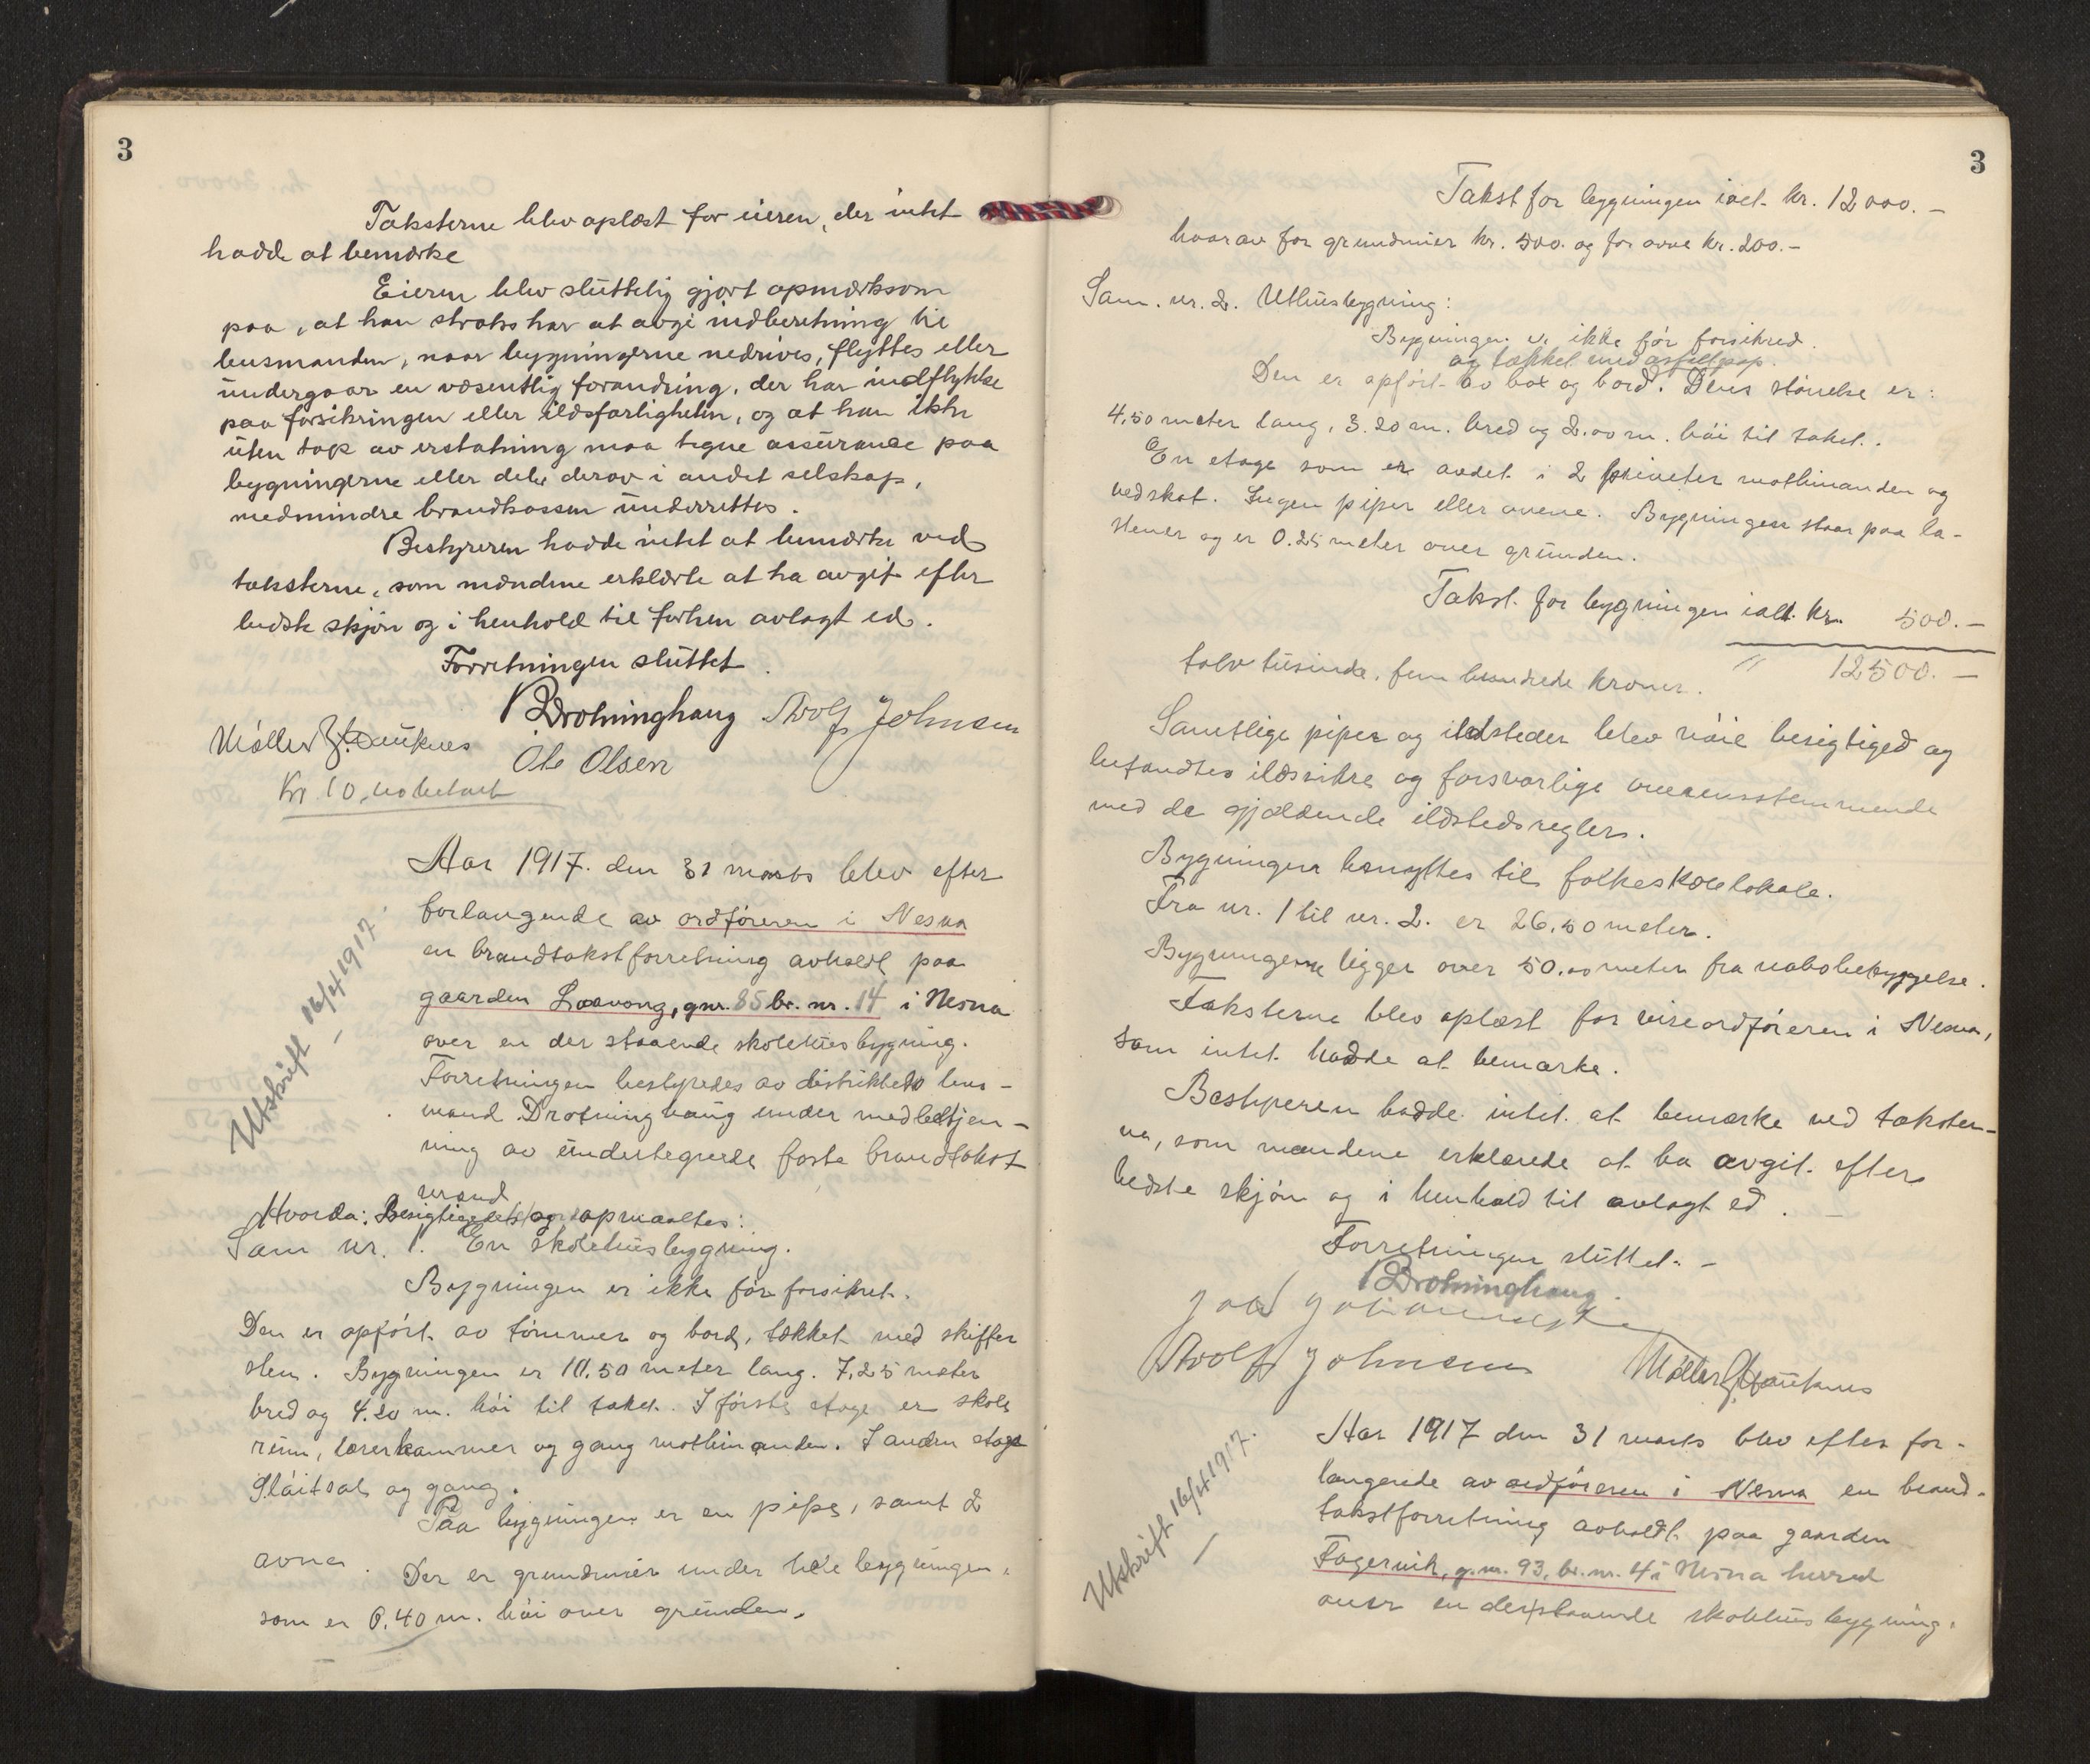 3
Taksterne blev oplæst for eieren, der intet
hadde at bemærke
Eieren blev sluttelig gjort opmærksom
paa, at han straks har at avgi indberetning til
lensmanden, naar bygningerne nedrives, flyttes eller
undergaar en væsentlig forandring, der har indflytelse
paa forsikringen eller ildsfarligheten, og at han ikke
uten tap av erstatning maa tegne assurance paa
bygningerne eller dele derav i andet selskap,
medmindre brandkassen underrettes.
Bestyreren hadde intet at bemærke ved
taksterne, som mændene erklærte at ha avgit efter
bedste skjøn og i henhold til forhen avlagt ed.
Forretningen sluttet.
Drotninghaug Adolf Johnsen
Møller
Ole Olsen
Kr. 10,
Aar 1917. den 31 marts blev efter
forlangende av ordføreren i Nesna
en brandtakstforretning avholdt paa
gaarden Laavong, gnr. 85 br. nr. 14 i Nesna
over en der staaende skolehusbygning.
Forretningen bestyredes av distriktets lens-
mand Drotninghaug under medbetjen-
ning av undertegnede faste brandtakst
mænd
Utskrift 16/4 1917.
Hvorda: Besigtigedes og opmaaltes:
Sam nr. 1. En skolehusbygning.
Bygningen er ikke før forsikret.
Den er opført av tømmer og bord, tækket med skiffer
sten. Bygningen er 10.50 meter lang. 7.25 meter
bred og 4.20 m. høi til taket. I første etage er skole
rum, lærerkammer og gang mothinanden. I anden etage
Sløitsal og gang.
Paa bygningen er en pipe, samt 2
ovner. Der er grundmur under hele bygningen,
som er 0.40 m. høi over grunden.
3
Takst for bygningen ialt kr. 12000.-
hvorav for grundmur kr. 500. og for ovne kr. 200.-
Sam. nr. 2. Uthusbygning:
Bygningen er ikke før forsikred.
og tækket med asfaltpap.
Den er opført av bord. Dens størrelse er:
4,50 meter lang, 3.20 m. bred og 2.00 m. høi til taket.
En etage som er avdelt i 2 priveter mothinanden og
vedskot. Ingen piper eller ovne. Bygningen staar paa la-
stener og er 0.25 meter over grunden.
Takst for bygningen ialt kr. 500.-
tolv tusinde, fem hundrede kroner. " 12500.-
Samtlige piper og ildsteder blev nøie besigtiged og
befandtes ildssikre og forsvarlige overensstemmende
med de gjældende ildstedsregler.
Bygningen benyttes til folkeskolelokale.
Fra nr. 1 til nr. 2. er 26.50 meter.
Bygningerne ligger over 50.00 meter fra nabobebyggelse.
Taksterne blev oplæst for viseordføreren i Nesna,
som intet hadde at bemærke.
Bestyreren hadde intet at bemærke ved takster-
ne, som mændene erklærede at ha avgit efter
bedste skjøn og i henhold til avlagt ed.
Forretningen sluttet.-
Drotninghaug.
Adolf Johnsen Møller
Utskrift 16/4 1917.
Aar 1917 den 31 marts blev efter for-
langende av ordføreren i Nesna en brand-
takstforretning avholdt paa gaarden
Fagervik, g.nr. 93, br. nr. 4 i Nesna herred
over en der staaende skolehusbygning.